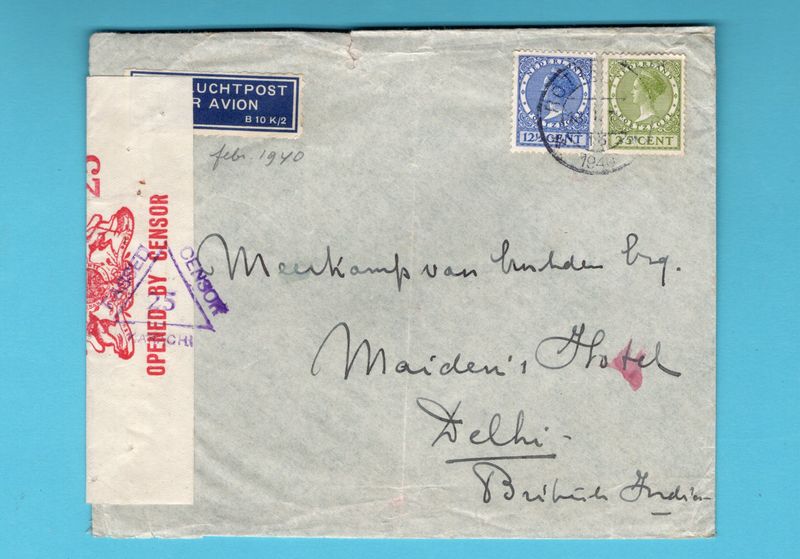 LUCHTPOST
R AVION
B 10 K/2
NEDERLAND
12½ CENT
NEDERLAND
25 CENT
1940
febr. 1940
25
OPENED BY CENSOR
PASSED CENSOR
25
KARACHI
Meerkamp van Embden Esq.
Maiden's Hotel
Delhi -
British India